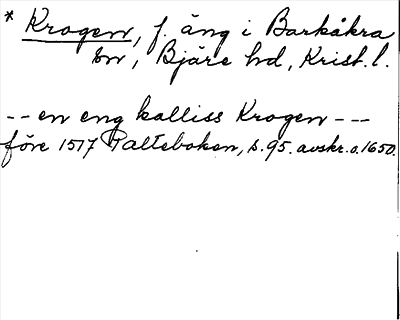 * Krogen, f. äng i Barkåkra
sn, Bjäre hd, Krist. l.
-- en eng kalliss Krogen ---
före 1517 Palteboken, s. 95. avskr. o. 1650.